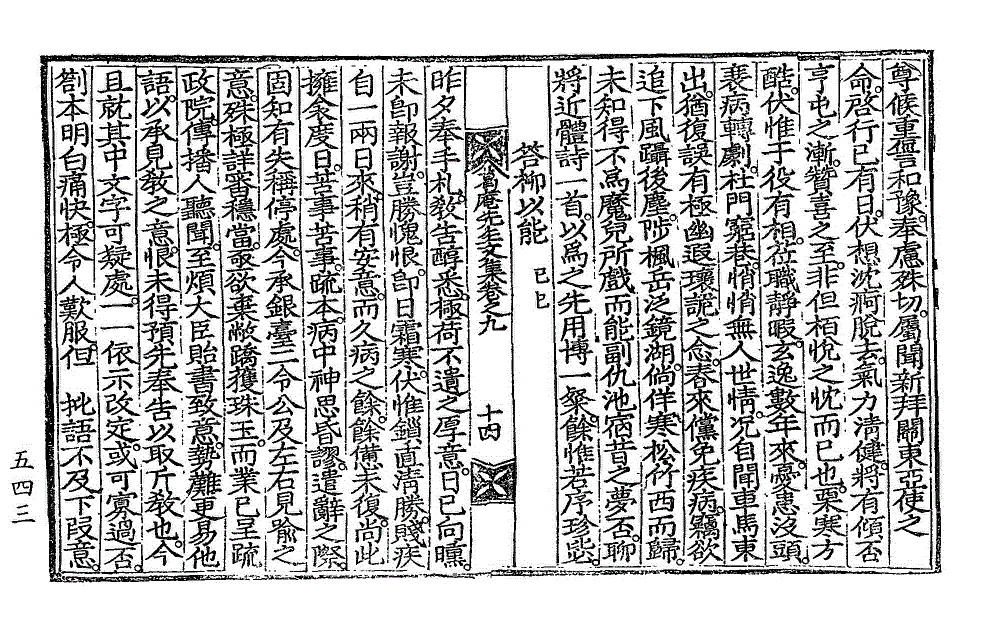 尊候重譽和豫。奉慮殊切。屬聞新拜關東亞使之
命。啓行已有日。伏想沈痾脫去。氣力淸健。將有傾否
亨屯之漸。贊喜之至。非但栢悅之忱而已也。栗寒方
酷。伏惟于役有相。莅職靜暇。玄逸數年來。憂恚沒頭。
衰病轉劇。杜門窮巷。悄悄無人世情。況自聞車馬東
出。猶復誤有極幽遐瓌詭之念。春來儻免疾病。竊欲
追下風躡後塵。陟楓岳泛鏡湖。倘佯寒松竹西而歸。
未知得不爲魔兒所戲而能副仇池宿昔之夢否。聊
將近體詩一首。以爲之先用博一粲。餘惟若序珍毖。
答柳以能 己巳
葛庵先生文集卷之九 十四
昨夕奉手札。敎告醇悉。極荷不遺之厚意。日已向曛
未卽報謝。豈勝愧恨。卽日霜寒。伏惟鎖直淸勝。賤疾
自一兩日來。稍有安意。而久病之餘。餘憊未復。尙此
擁衾度日。苦事苦事。疏本。病中神思昏謬。遣辭之際。
固知有失稱停處。今承銀臺二令公及左右見喩之
意。殊極詳審穩當。亟欲棄敝蹻獲珠玉。而業已呈疏
政院。傳播人聽聞。至煩大臣貽書致意。勢難更易他
語。以承見敎之意。恨未得預先奉告以取斤敎也。今
且就其中文字可疑處。一一依示改定。或可寡過否。
劄本明白痛快。極令人歎服。但 批語不及下段意。
五四三